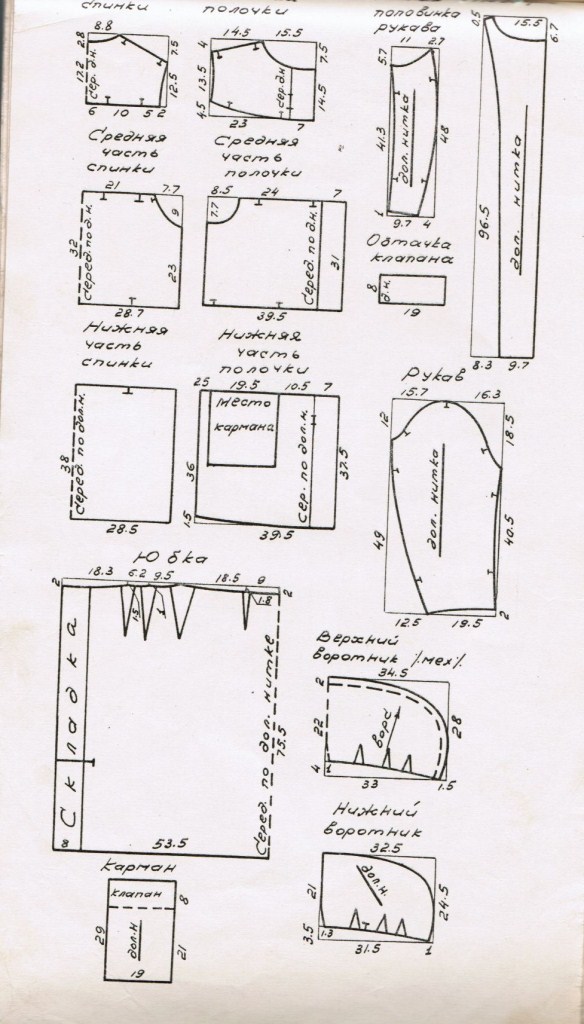 спинки
полочки
половинка
рукава
8.8
2.8
7.5
17.2
Сер. д.н.
12.5
6 10 5 2
14.5 15.5
4
7.5
13.5
сер. д.н
14.5
4.5
23 7
11 2.7
5.7
41.3
дол. нитка
48
1
9.7 4
0.5
15.5
6.7
96.5
дол. нитка
8.3 9.7
Средняя
часть
спинки
21 7.7
9
32
Серед. по д.н.
23
28.7
Средняя
часть
полочки
8.5 24 7
7.7
Серед. по д.н.
31
39.5
Обтачка
клапана
8
д.н.
19
Нижняя
часть
спинки
38
Серед. по дол.н.
28.5
Нижняя
часть
полочки
25 19.5 10.5 7
место
кармана
36
Сер. по дол.н.
37.5
1.5
39.5
Рукав
15.7 16.3
12
18.5
дол. нитка
49
40.5
12.5 19.5 2
Юбка
2 18.3 6.2 9.5 18.5 9 2
1.5
1.8
Складка
Серед. по дол. нитке
75.5
8
53.5
Верхний
воротник /мех/
34.5
2
22
ворс
28
4 1
33 1.5
Нижний
воротник
32.5
21
дол.н.
24.5
3.5 1.3
31.5 1
Карман
клапан
8
29
дол.н
21
19